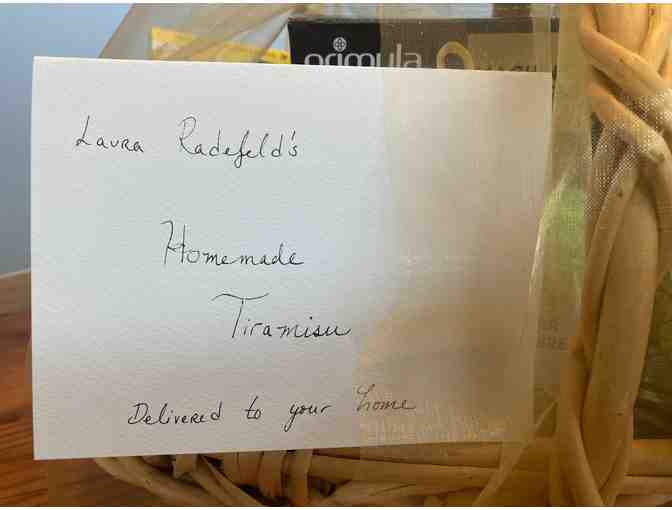 primula
Laura Radefeld's
Homemade
Tiramisu
Delivered to your home